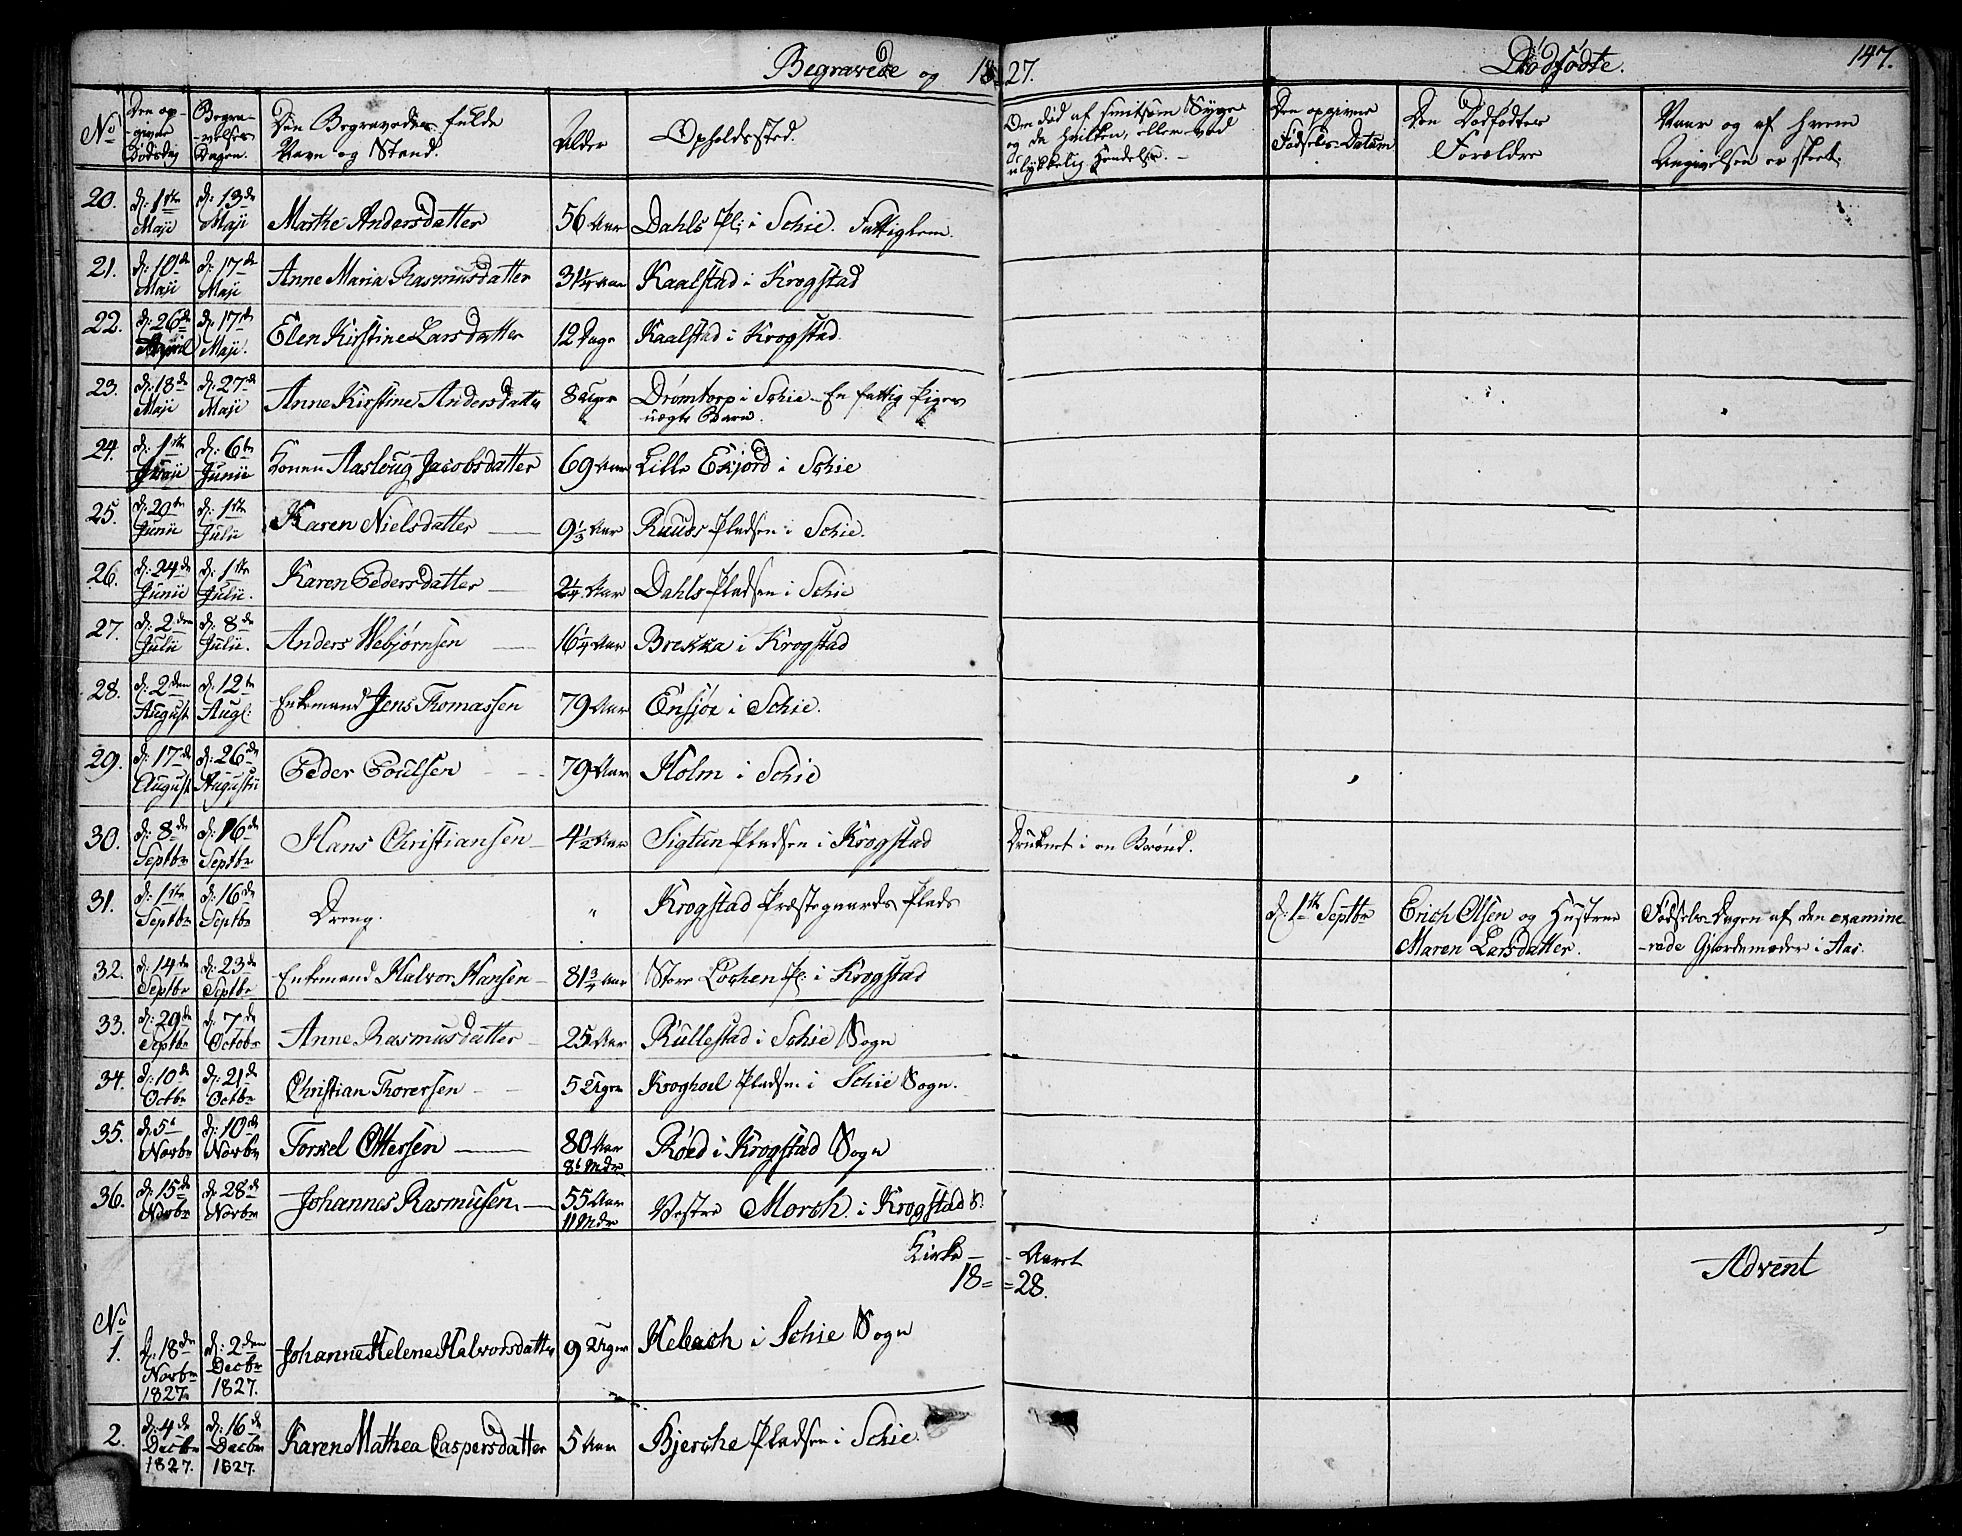 Begravede og 1827. Dödfödte. 147.
No Den opgivne Dødsdag Begravelses Dagen. Den Begravedes fulde Navn og Stand. Alder Opholdssted. Om død af smitsom Syge og da hvilken, eller ved ulykkelig Hændelse. Den opgivne Fødsels-Datum Den Dødfødtes Forældre Naar og af hvem Angivelsen er skeet.
20. d: 1ste Maji d: 13de Maji Marthe Andersdatter 56 Aar Dahls Pl: i Schie. Fattiglem.
21. d: 10de Maji d: 17de Maji Anne Maria Rasmusdatter 31 1/4 Aar Kaalstad i Krogstad
22. d: 26de April d: 17de Maji. Elen Kirstine Larsdatter 12 Dage Kaalstad i Krogstad.
23. d: 18de Maji d: 27de Maji Anne Kirstine Andersdatter 8 Uger Drömtorp i Schie - En fattig Piges
uægte Barn.
24. d: 1ste Junii d: 6te Junii Konen Aasloug Jacobsdatter 69 Aar Lille Eskjord i Schie
25. d: 20te Junii d: 1ste Julii Karen Nielsdatter 9 1/3 Aar Ruuds Pladsen i Schie.
26. d: 24de Junii d: 1ste Julii. Karen Pedersdatter 2 1/4 Aar Dahls Pladsen i Schie
27. d: 2den Julii d: 8de Julii. Anders Webjørnsen 16 1/4 Aar Brekka i Krogstad
28. d: 2den August d: 12te Augl: Enkemand Jens Thomassen 79 Aar Ensjøe i Schie.
29. d: 17de August d: 26de Augustii Peder Poulsen 79 Aar Holm i Schie
30. d: 8de Septbr d: 16de Septbr Hans Christiansen 4 1/2 Aar Sigtun Pladsen i Krogstad Druknet i en Brønd.
31. d: 1ste Septbr d: 16de Septbr Dreng. " Krogstad Præstegaards Plads d: 1ste Septbr Erich Olsen og Hustrue Fødsels-Dagen af den examine-
Maren Larsdatter. -rede Gjordemoder i Aas.
32. d: 14de Septbr d: 23de Septbr Enkemand Halvor Hansen 81 3/4 Aar Store Lochen Pl: i Krogstad
33. d: 29de Septbr d: 7de Octobr Anne Rasmusdatter 25 Aar Rullestad i Schie Sogn
34. d: 10de Octbr d: 21de Octbr Christian Thorersen 5 Uger Kroghoel Pladsen i Schie Sogn.
35. d: 5te Novbr d: 10de Novbr Torkel Ottersen 80 Aar Röed i Krogstad Sogn
8 Mdr
36. d: 15de Novbr d: 28de Novbr Johannes Rasmusen 55 Aar Vestre Morch i Krogstad S:
11 Mdr
Kirke - Aaret
18 = = 28. Advent
No
1. d: 18de Novbr 1827. d: 2den Decbr 1827. Johanne Helene Halvorsdatter 9 Uger Hebech i Schie Sogn
2. d: 4de Decbr 1827. d: 16de Decbr 1827. Karen Mathea Caspersdatter 5 Aar Bjerche Pladsen i Schie